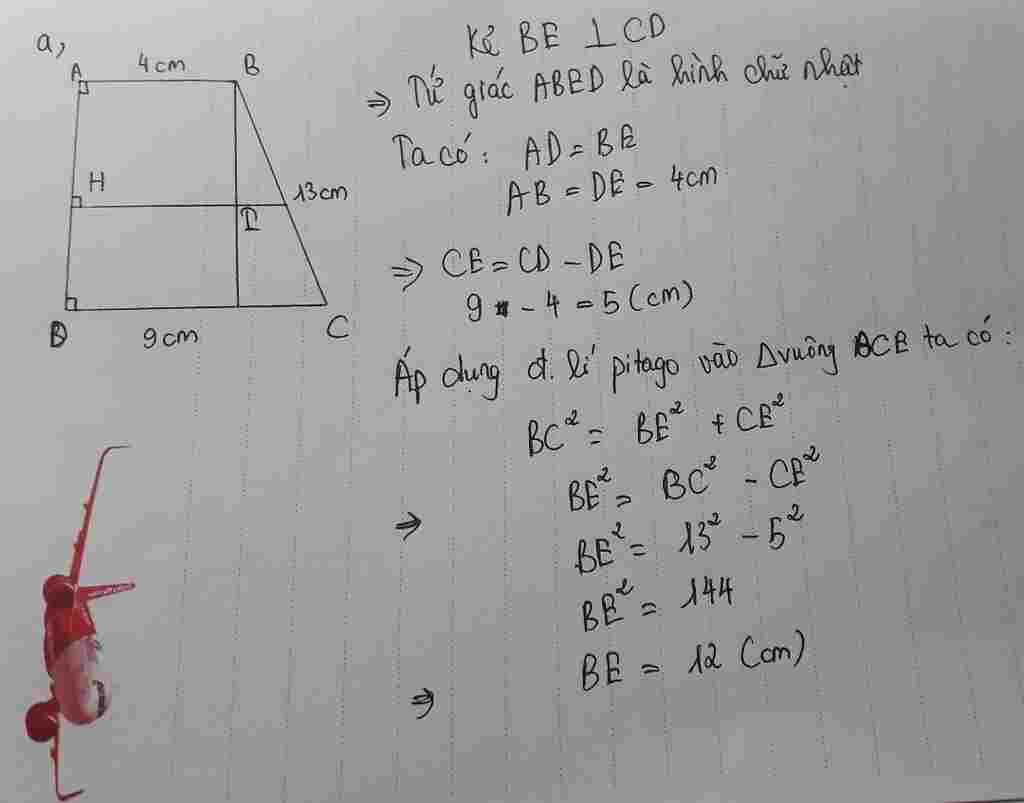 a,
A
4cm
B
H
13cm
I
D
9cm
C
Kẻ BE ⊥ CD
⇒ Tứ giác ABED là hình chữ nhật
Ta có: AD = BE
AB = DE = 4cm
⇒ CE = CD - DE
9 - 4 = 5 (cm)
Áp dụng đ. lí pitago vào Δvuông BCE ta có:
BC² = BE² + CE²
⇒ BE² = BC² - CE²
BE² = 13² - 5²
BE² = 144
⇒ BE = 12 (cm)